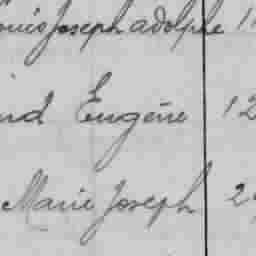 Louis Joseph adolphe 1
nd Eugène 12
Marie Joseph 2